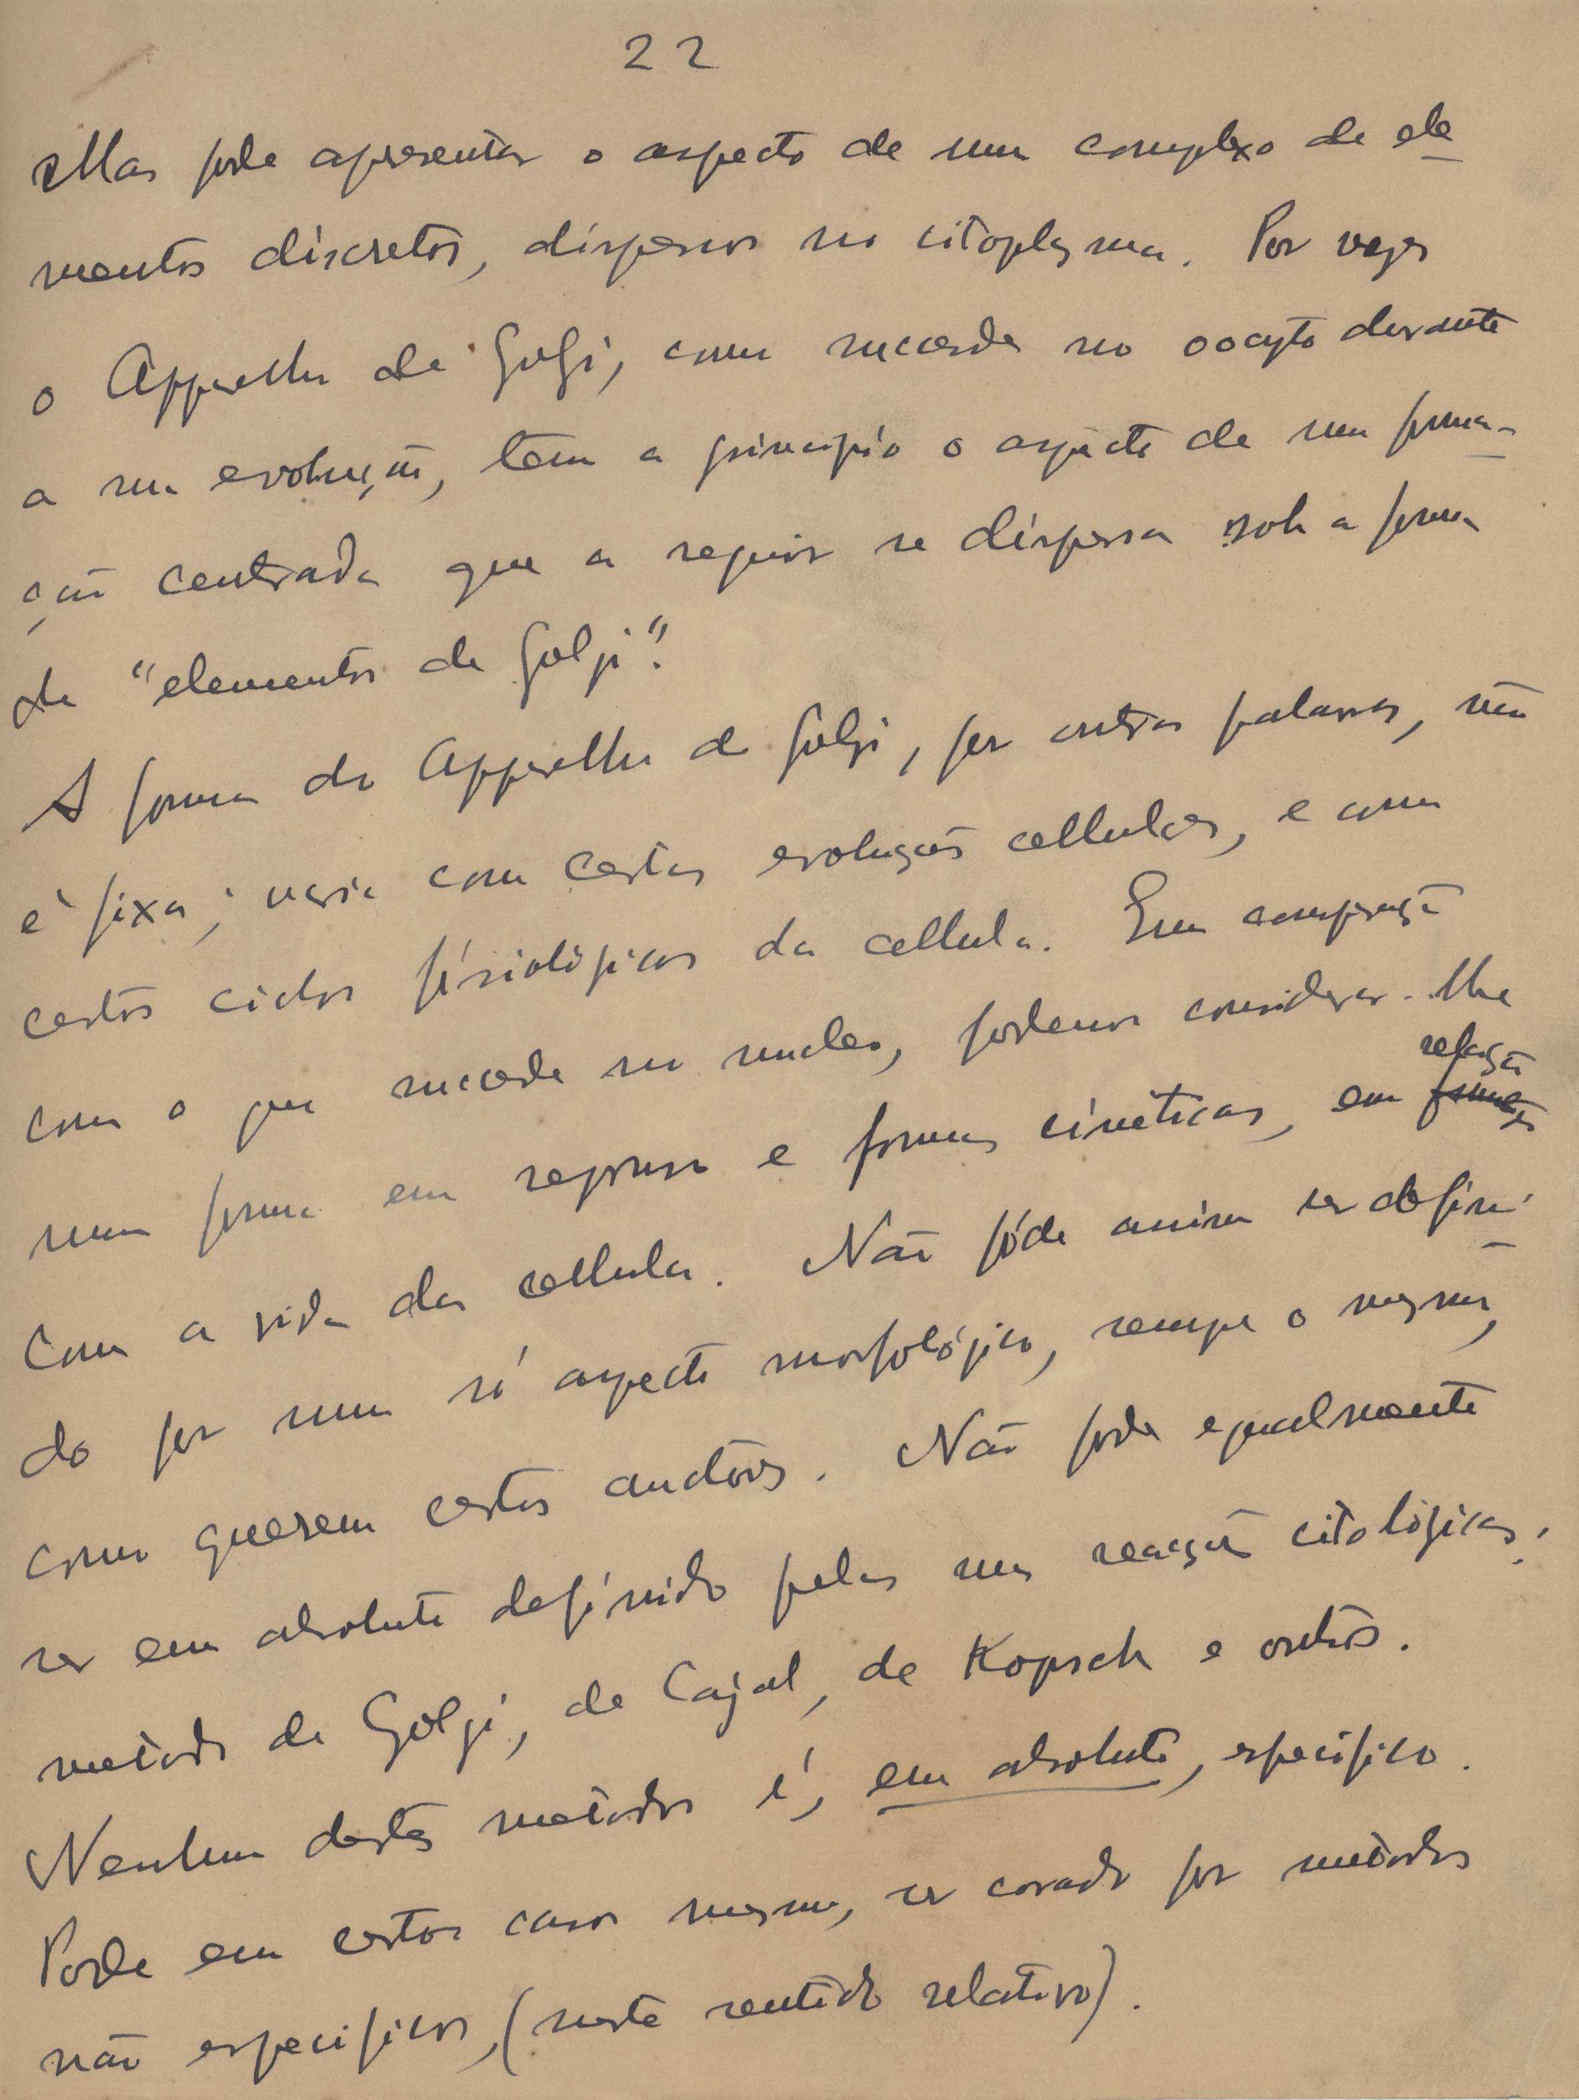 22
Mas pode apresentar o aspecto de um complexo de ele
mentos discretos, dispersos no citoplasma. Por vezes
o Apparelho de Golgi, como succede no oocyto durante
a sua evolução, tem a principio o aspecto de uma forma-
ção centrada que a seguir se dispersa sob a forma
de "elementos de Golgi".
A forma do Apparelho de Golgi, por outras palavras, não
é fixa; varia com certas evoluções cellulares, e com
certos ciclos fisiológicos da cellula. Em comparação
com o que succede no nucleo, podemos considerar-lhe
uma forma em repouso e formas cinéticas, em relação
com a vida da cellula. Não póde assim ser defini
do por um só aspecto morfológico, sempre o mesmo,
como querem certos auctores. Não pode egualmente
ser em absoluto definido pelas suas reacções citológicas:
metodo de Golgi, de Cajal, de Kopsch e outros.
Nenhum destes metodos é, em absoluto, especifico.
Pode em certos casos mesmo, ser corado por metodos
não especificos, (neste sentido relativo).